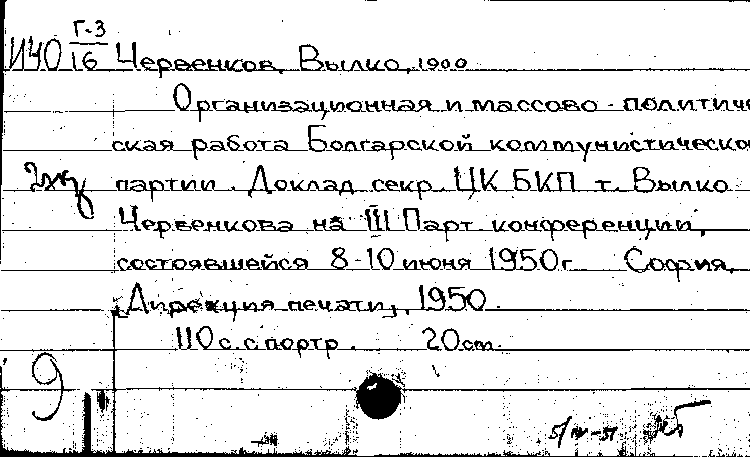 И40 Г-3/16 Червенков, Вылко, 1900
Организационная и массово-политиче
ская работа Болгарской коммунистическо
2хз партии. Доклад секр. ЦК БКП т. Вылко
Червенкова на III Парт. конференции,
состоявшейся 8-10 июня 1950г София,
"Дирекция печати", 1950.
110 с. с портр. 20 cm.
9
5/IV-51